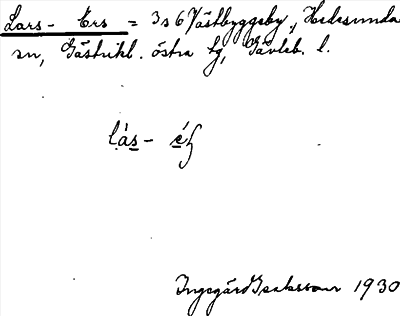 Lars - Ers = 3 s 6 Västbyggeby, Hedesunda
sn, Gästrikl. östra tg, Gävleb. l.
lás -
Ingegärd Isaksson 1930